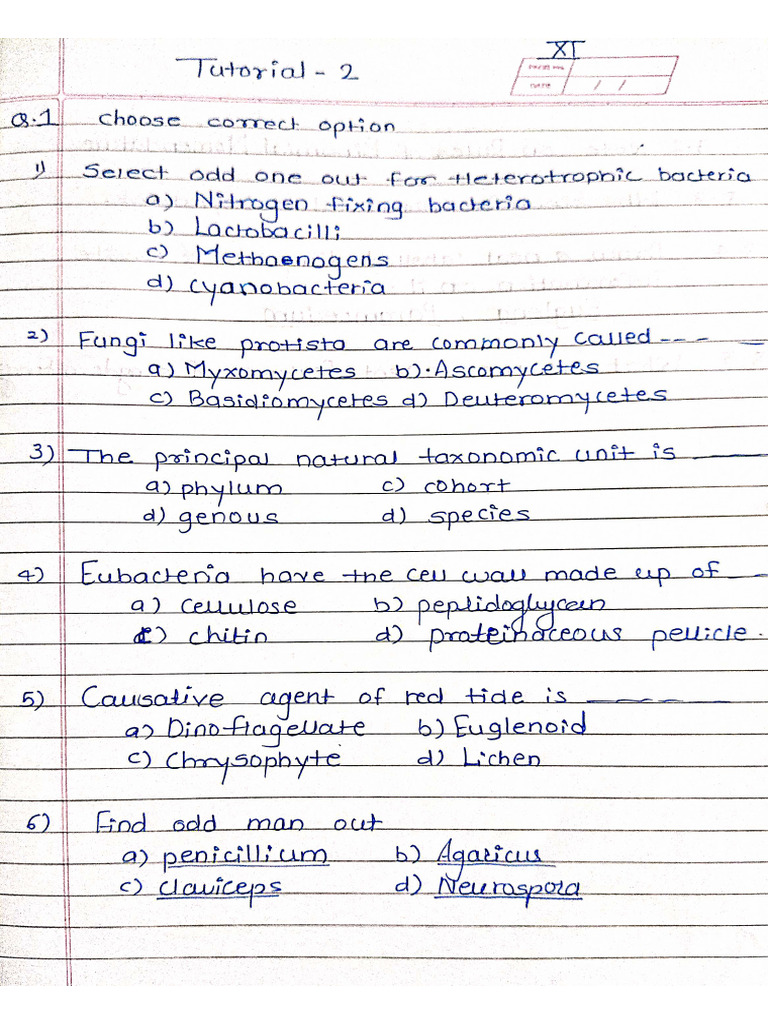 XI
Tutorial - 2
PAGE NO.
DATE / /
Q.1 Choose correct option
1) Select odd one out for Heterotrophic bacteria
a) Nitrogen fixing bacteria
b) Lactobacilli
c) Methaenogens
d) Cyanobacteria
2) Fungi like protista are commonly called --- —
a) Myxomycetes b). Ascomycetes
c) Basidiomycetes d) Deuteromycetes
3) The principal natural taxonomic unit is ———
a) phylum c) cohort
d) genous d) species
4) Eubacteria have the cell wall made up of —
a) cellulose b) peptidoglycan
c) chitin d) proteinaceous pellicle.
5) Causative agent of red tide is — — — —
a) Dinoflagellate b) Euglenoid
c) Chrysophyte d) Lichen
6) Find odd man out
a) penicillium b) Agaricus
c) claviceps d) Neurospora